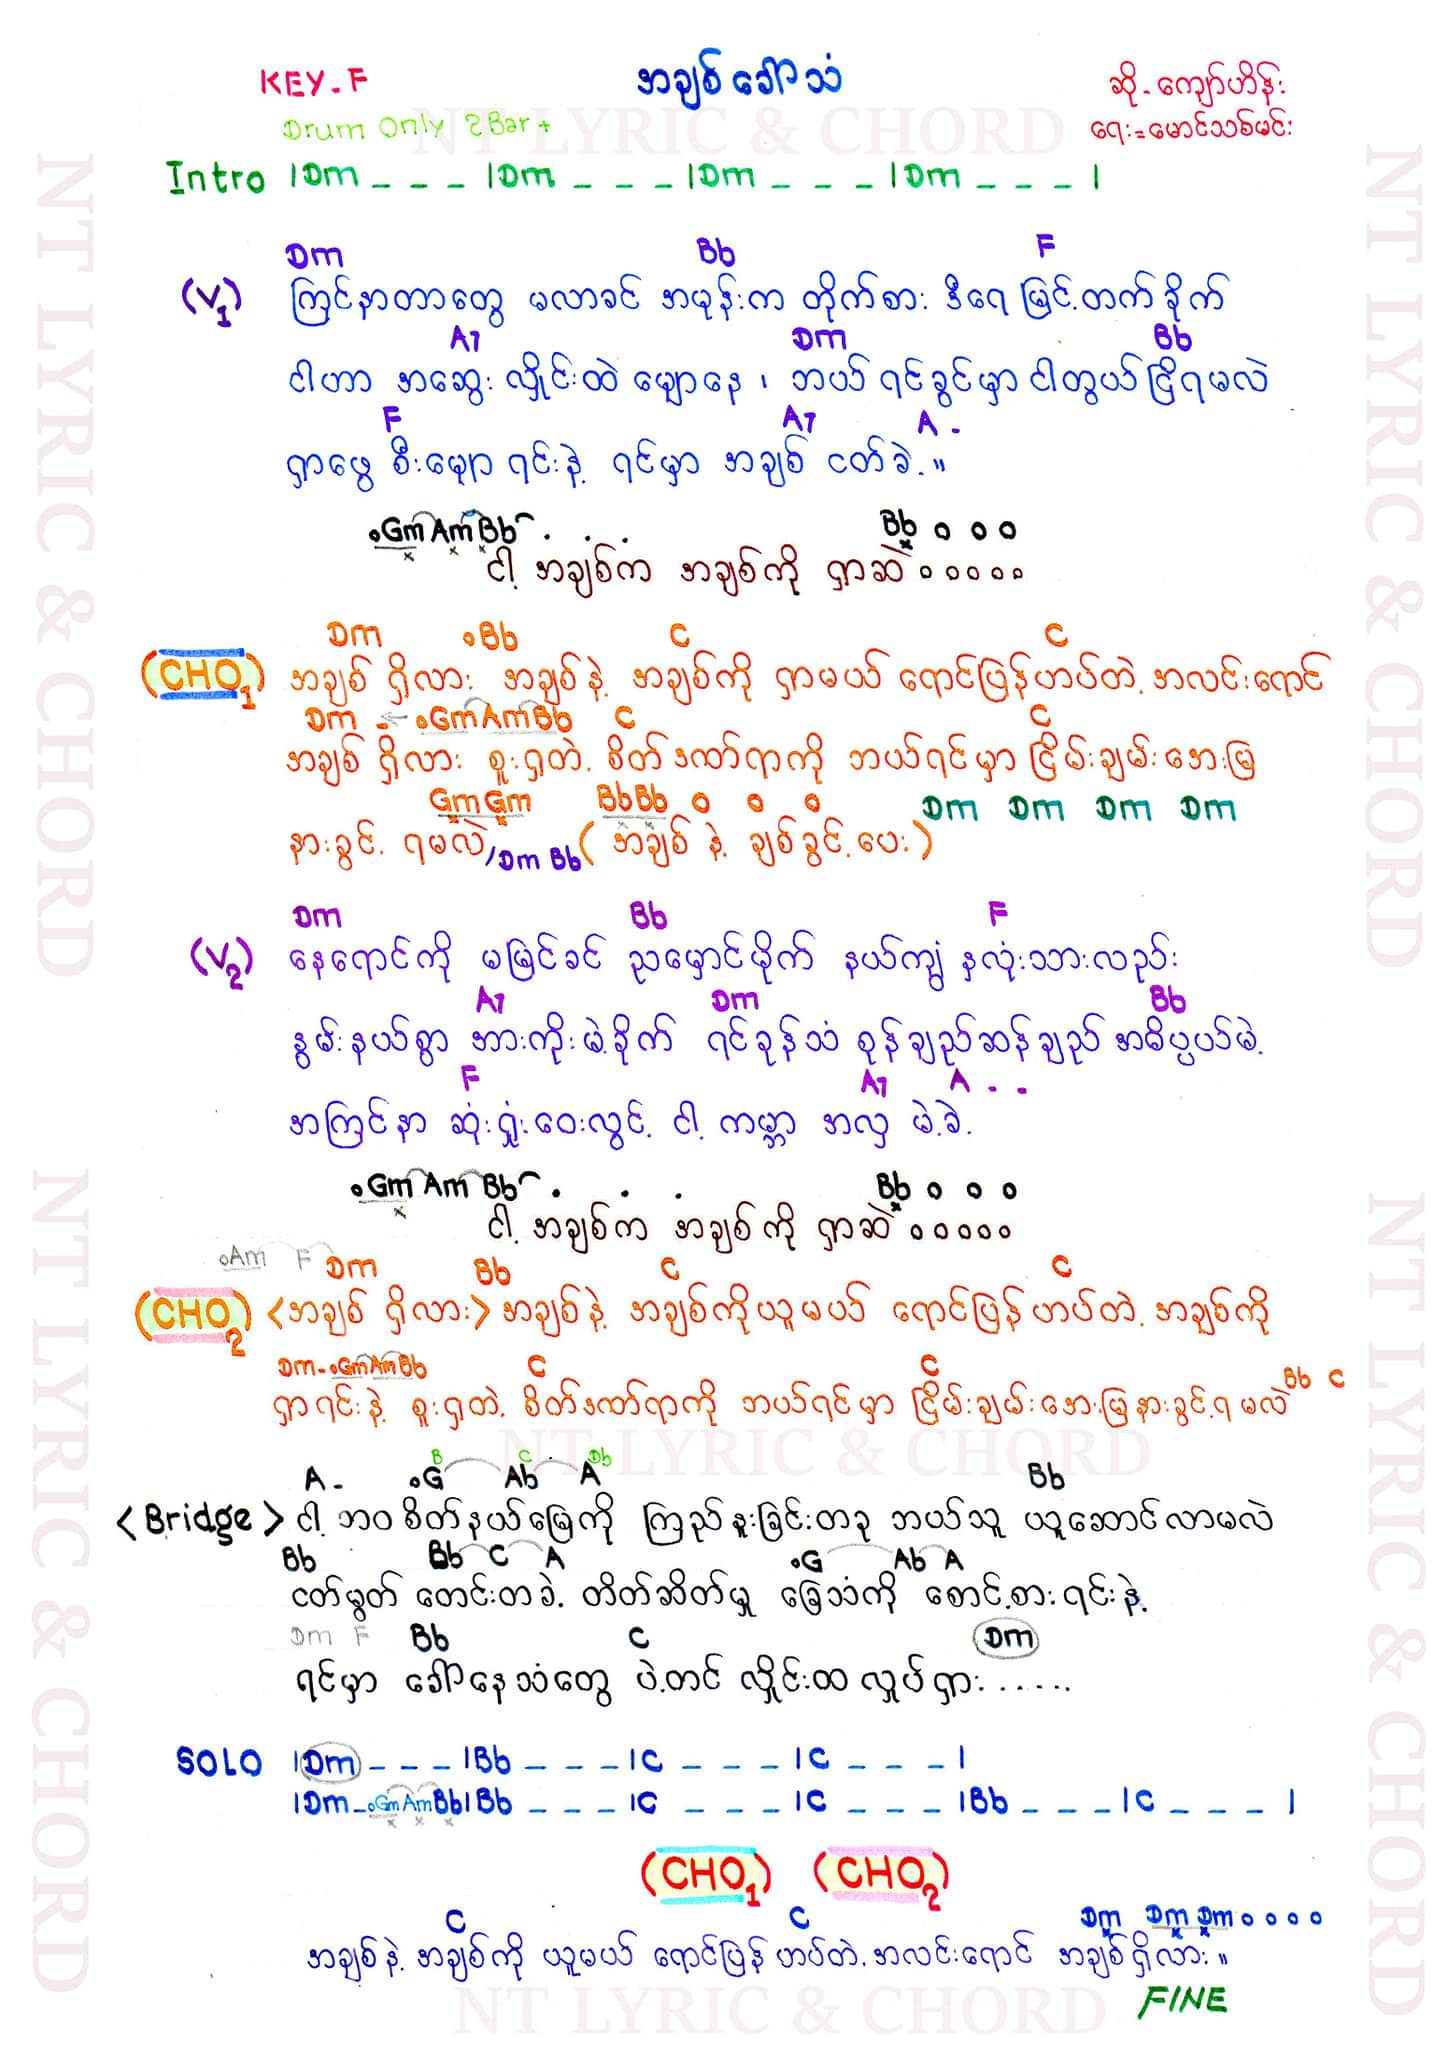 KEY - F အချစ်ခေါ်သံ ဆို - ကျော်ဟိန်း
Drum Only 2Bar + ရေး = မောင်သစ်မင်း
Intro |Dm _ _ _ |Dm _ _ _ |Dm _ _ _ |Dm _ _ _ |
Dm Bb F
(V1) ကြင်နာတာတွေ မလာခင် အမုန်းက တိုက်စား ဒီရေ မြင့်တက်ခိုက်
A7 Dm Bb
ငါဟာ အဆွေး လှိုင်းထဲ မျောနေ ၊ ဘယ် ရင်ခွင်မှာ ငါတွယ်ငြိရမလဲ
F A7 A -
ရှာဖွေ စီးမျော ရင်းနဲ့ ရင်မှာ အချစ် ငတ်ခဲ့ ။
Gm Am Bb . . . Bb o o o
ငါ့ အချစ်က အချစ်ကို ရှာဆဲ o o o o o
Dm Bb C C
(CHO1) အချစ် ရှိလား အချစ်နဲ့ အချစ်ကို ရှာမယ် ရောင်ပြန်ဟပ်တဲ့ အလင်းရောင်
Dm - Gm Am Bb C C
အချစ် ရှိလား စူးရှတဲ့ စိတ်ဒဏ်ရာကို ဘယ်ရင်မှာ ငြိမ်းချမ်းအေးမြ
Gm Gm Bb Bb o o o Dm Dm Dm Dm
နားခွင့် ရမလဲ / Dm Bb ( အချစ် နဲ့ ချစ်ခွင့်ပေး )
Dm Bb F
(V2) နေရောင်ကို မမြင်ခင် ညမှောင်မိုက် နယ်ကျွံ နှလုံးသားလည်း
A7 Dm Bb
နွမ်းနယ်စွာ အားကိုးမဲ့ခိုက် ရင်ခုန်သံ စုန်ချည်ဆန်ချည် အဓိပ္ပယ်မဲ့
F A7 A - -
အကြင်နာ ဆုံးရှုံးဝေးလွင့် ငါ့ ကမ္ဘာ အလှ မဲ့ခဲ့
Gm Am Bb . . . Bb o o o
ငါ့ အချစ်က အချစ်ကို ရှာဆဲ o o o o o
Am F Dm Bb C C
(CHO2) <အချစ် ရှိလား> အချစ်နဲ့ အချစ်ကိုယူမယ် ရောင်ပြန် ဟပ်တဲ့ အချစ်ကို
Dm - Gm Am Bb C C Bb C
ရှာရင်းနဲ့ စူးရှတဲ့ စိတ်ဒဏ်ရာကို ဘယ်ရင်မှာ ငြိမ်းချမ်းအေးမြနားခွင့်ရ မလဲ
A - G B Ab C A Db Bb
<Bridge> ငါ့ ဘဝ စိတ်နယ်မြေကို ကြည်နူးခြင်းတခု ဘယ်သူ ယူဆောင်လာမလဲ
Bb Bb C A G Ab A
ငတ်မွတ် တောင်းတခဲ့ တိတ်ဆိတ်မှု ခြေသံကို စောင့်စားရင်းနဲ့
Dm F Bb C Dm
ရင်မှာ ခေါ်နေသံတွေ ပဲ့တင် လှိုင်းထ လှုပ်ရှား ......
SOLO |Dm _ _ _ |Bb _ _ _ |C _ _ _ |C _ _ _ |
|Dm _ Gm Am Bb |Bb _ _ _ |C _ _ _ |C _ _ _ |Bb _ _ _ |C _ _ _ |
(CHO1) (CHO2)
C C Dm Dm Dm o o o o
အချစ်နဲ့ အချစ်ကို ယူမယ် ရောင်ပြန် ဟပ်တဲ့ အလင်းရောင် အချစ်ရှိလား ။
FINE
NT LYRIC & CHORD
NT LYRIC & CHORD
NT LYRIC & CHORD
NT LYRIC & CHORD
NT LYRIC & CHORD
NT LYRIC & CHORD
NT LYRIC & CHORD